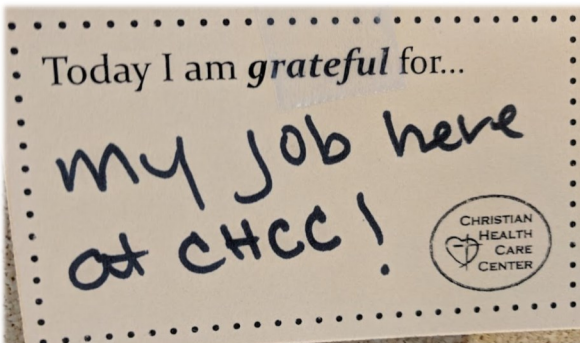 Today I am grateful for...
my job here
at CHCC!
CHRISTIAN
HEALTH
CARE
CENTER